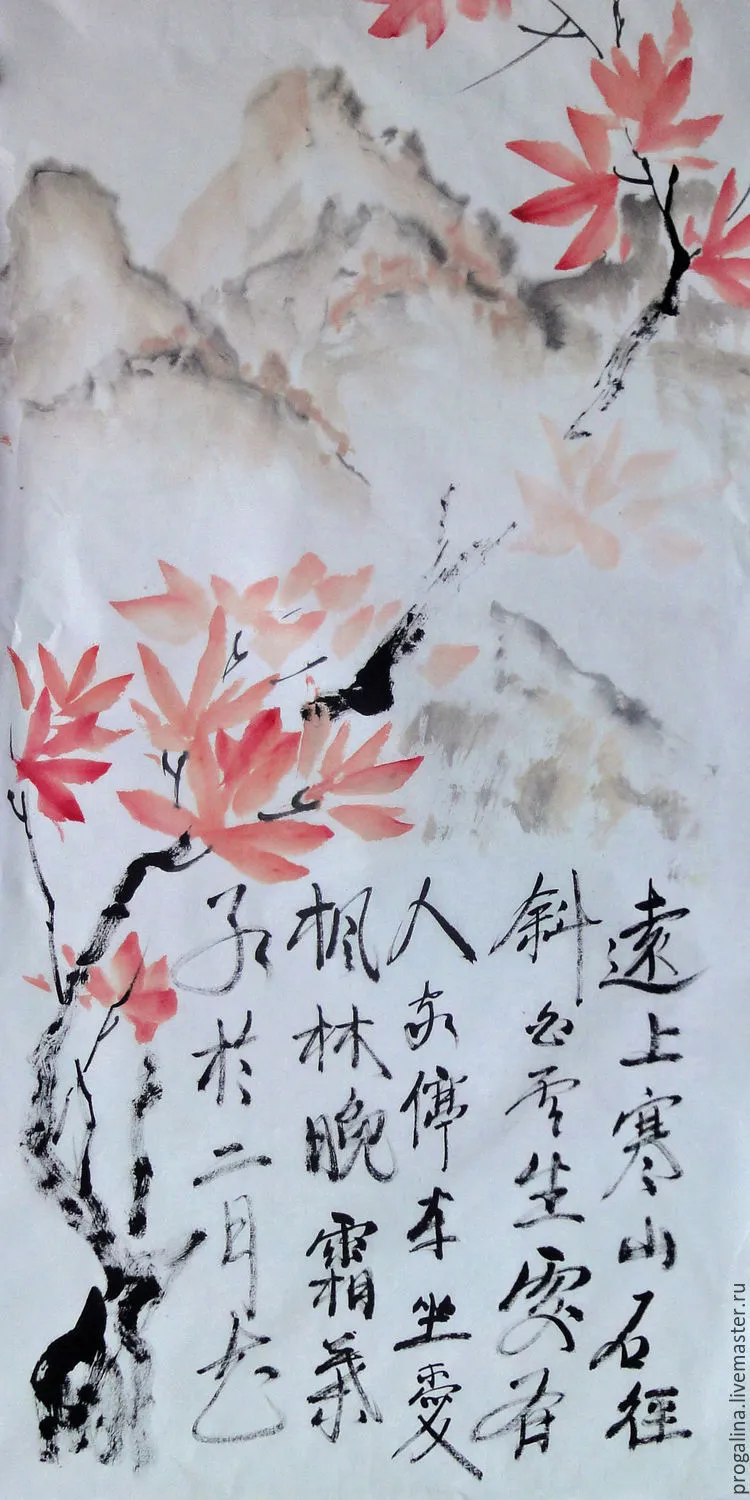 遠上寒山石徑
斜白雲生處有
人家停車坐愛
楓林晚霜葉
紅於二月花
progalina.livemaster.ru